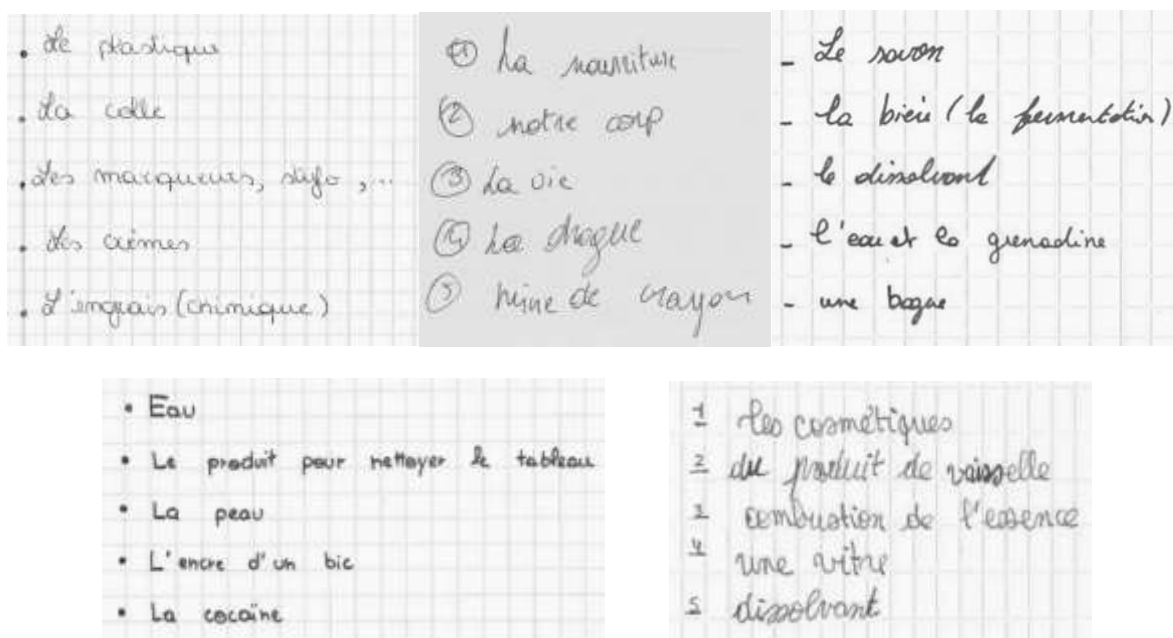 . Le plastique
. La colle
. Les marqueurs, stylo ,...
. Les crèmes
. L'engrais (chimique)
① La nourriture
② notre corp
③ La vie
④ La drogue
⑤ mine de crayon
- Le savon
- la bière (la fermentation)
- le dissolvant
- l'eau et la grenadine
- une bague
• Eau
• Le produit pour nettoyer le tableau
• La peau
• L'encre d'un bic
• La cocaïne
1 les cosmétiques
2 du produit de vaisselle
3 combustion de l'essence
4 une vitre
5 dissolvant